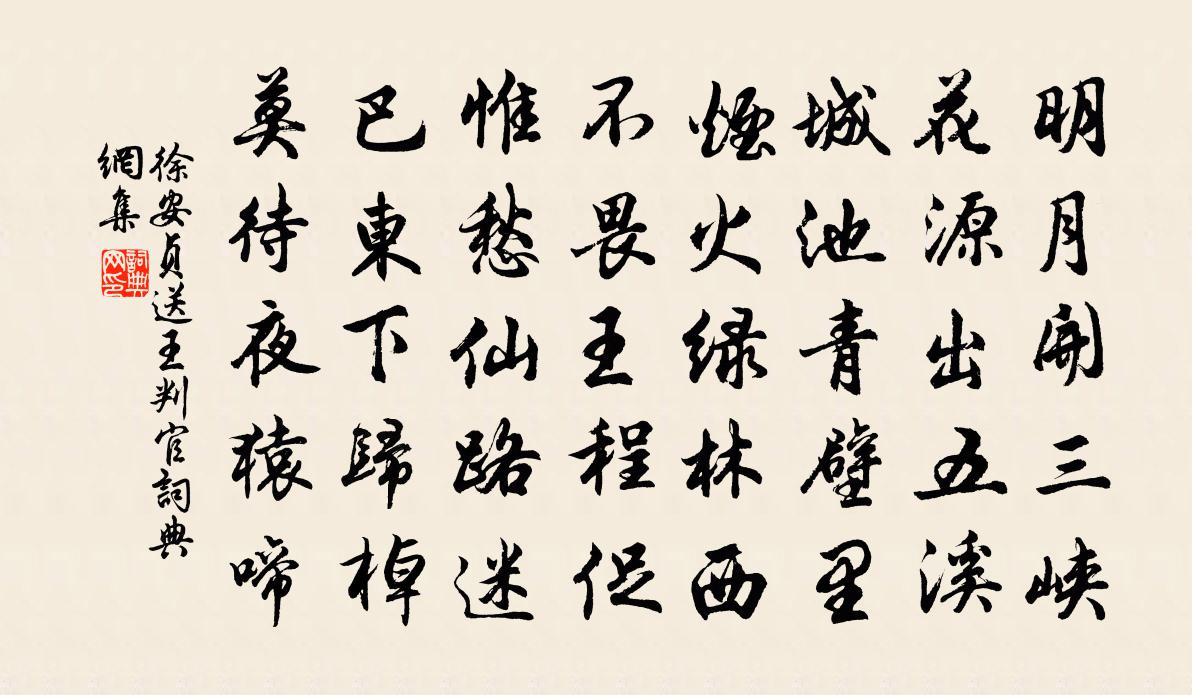 明月開三峽
花源出五溪
城池青壁里
煙火绿林西
不畏王程促
惟愁仙路迷
巴東下歸棹
莫待夜猿啼
徐安貞送王判官詞典
網集
詞典网印